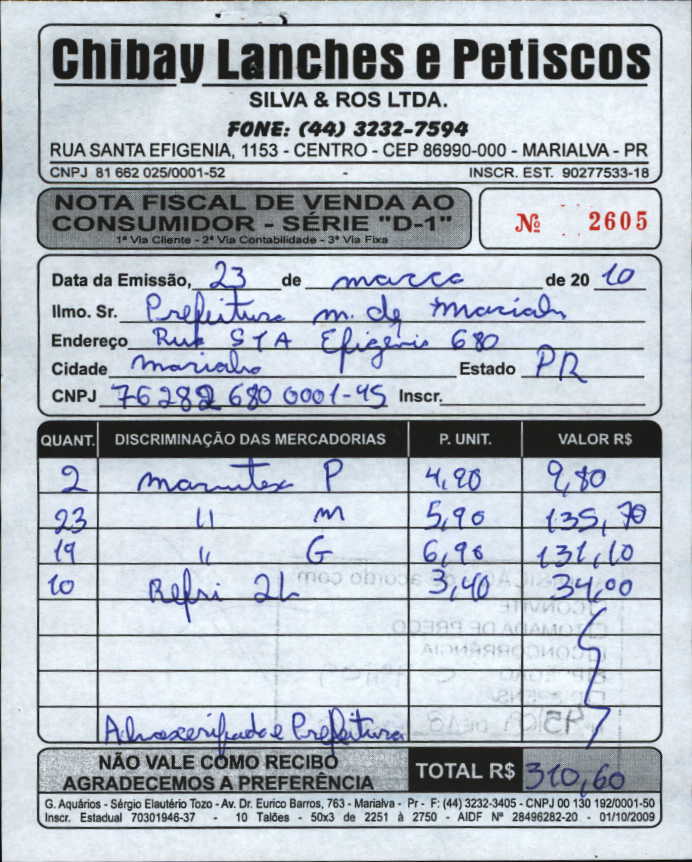 Chibay Lanches e Petiscos
SILVA & ROS LTDA.
FONE: (44) 3232-7594
RUA SANTA EFIGENIA, 1153 - CENTRO - CEP 86990-000 - MARIALVA - PR
CNPJ 81 662 025/0001-52 - INSCR. EST. 90277533-18
NOTA FISCAL DE VENDA AO
CONSUMIDOR - SÉRIE "D-1"
1ª Via Cliente - 2ª Via Contabilidade - 3ª Via Fixa
Nº 2605
Data da Emissão, 23 de março de 20 10
Ilmo. Sr. Prefeitura m. de Marialva
Endereço Rua STA Efigênia 680
Cidade Marialva Estado PR
CNPJ 76282680 0001-45 Inscr.
QUANT. DISCRIMINAÇÃO DAS MERCADORIAS P. UNIT. VALOR R$
2 marmitex P 4,90 9,80
23 " m 5,90 135,70
19 " G 6,90 131,10
10 Refri 2L 3,40 34,00
Almoxarifado e Prefeitura
NÃO VALE COMO RECIBO
AGRADECEMOS A PREFERÊNCIA
TOTAL R$ 310,60
G. Aquários - Sérgio Elautério Tozo - Av. Dr. Eurico Barros, 763 - Marialva - Pr - F: (44) 3232-3405 - CNPJ 00 130 192/0001-50
Inscr. Estadual 70301946-37 - 10 Talões - 50x3 de 2251 à 2750 - AIDF Nº 28496282-20 - 01/10/2009